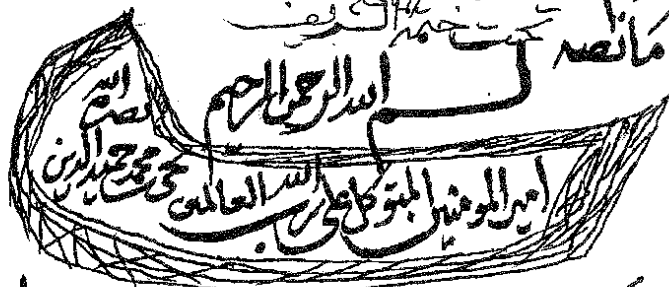 ما نصه
بسم الله الرحمن الرحيم
أمير المومنين المتوكل على الله رب العالمين
يحيى محمد حميد الدين
نصره الله